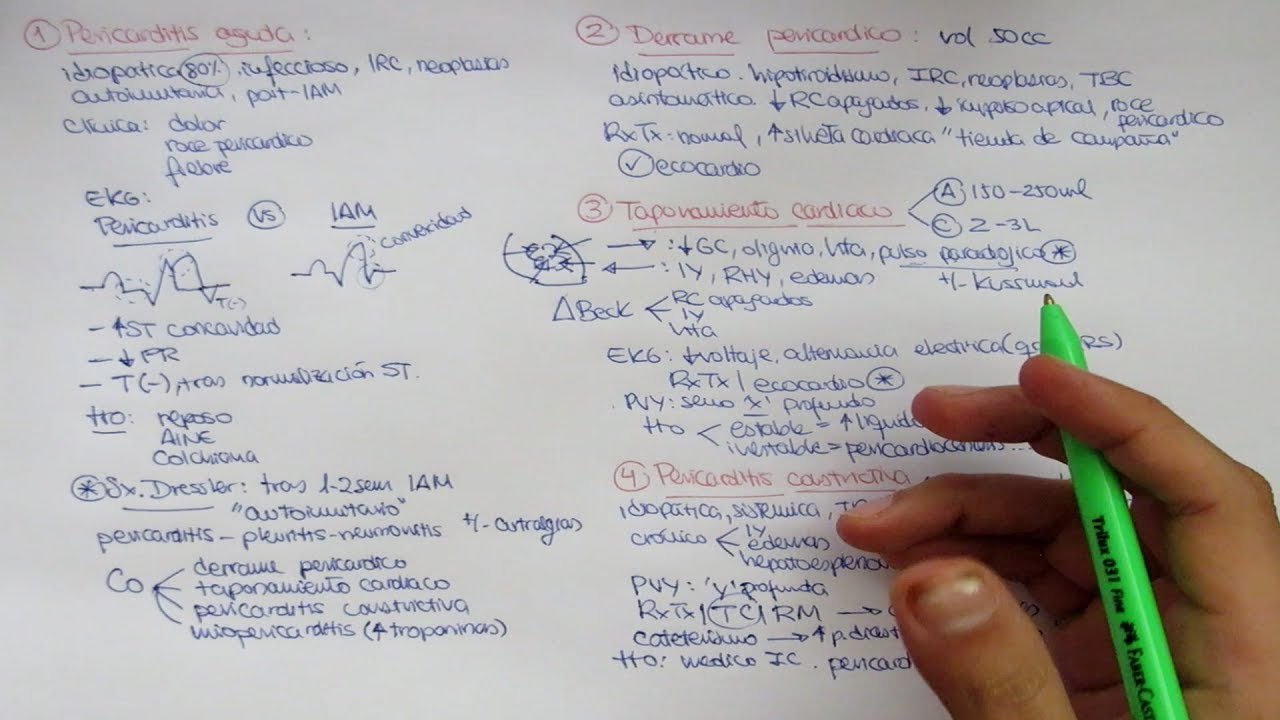 ① Pericarditis aguda:
idiopatica 80%, infeccioso, IRC, neoplasias
autoinmutaria, post-IAM
Clinica: dolor
roce pericardico
fiebre
EKG:
Pericarditis VS IAM
convexidad
T(-)
- ↑ST concavidad
- ↓PR
- T(-), tras normalización ST.
tto: reposo
AINE
Colchicina
* Sx. Dressler: tras 1-2 sem IAM
"autoinmutario"
pericarditis - pleuritis - neumonitis +/- artralgias
Co
derrame pericardico
taponamiento cardiaco
pericarditis constrictiva
miopericarditis (↑troponinas)
② Derrame pericardico: vol 50cc
Idiopático. hipotiroidismo, IRC, neoplasias, TBC
asintomático. ↓RC apagados, ↓impulso apical, roce pericardico
RxTx: normal, ↑silueta cardiaca "tienda de campaña"
✓ ecocardio
③ Taponamiento cardiaco
A 150-250ml
C 2-3L
→: ↓GC, oliguria, hta, pulso paradojico *
←: IY, RHY, edemas +/- Kussmaul
△Beck
RC apagados
IY
hta
EKG: ↓voltaje, alternancia electrica RS)
RxTx | ecocardio *
PVY: seno 'x' profundo
tto
estable = ↑liquido
inestable = pericardiocentesis...
④ Pericarditis constrictiva
idiopática, sistemica,
crónico
IY
edemas
PVY: 'y' profunda
RxTx | TC | RM →
cateterismo → ↑p.
tto: medico IC.
Trilux 031 Fine
FABER-CAST